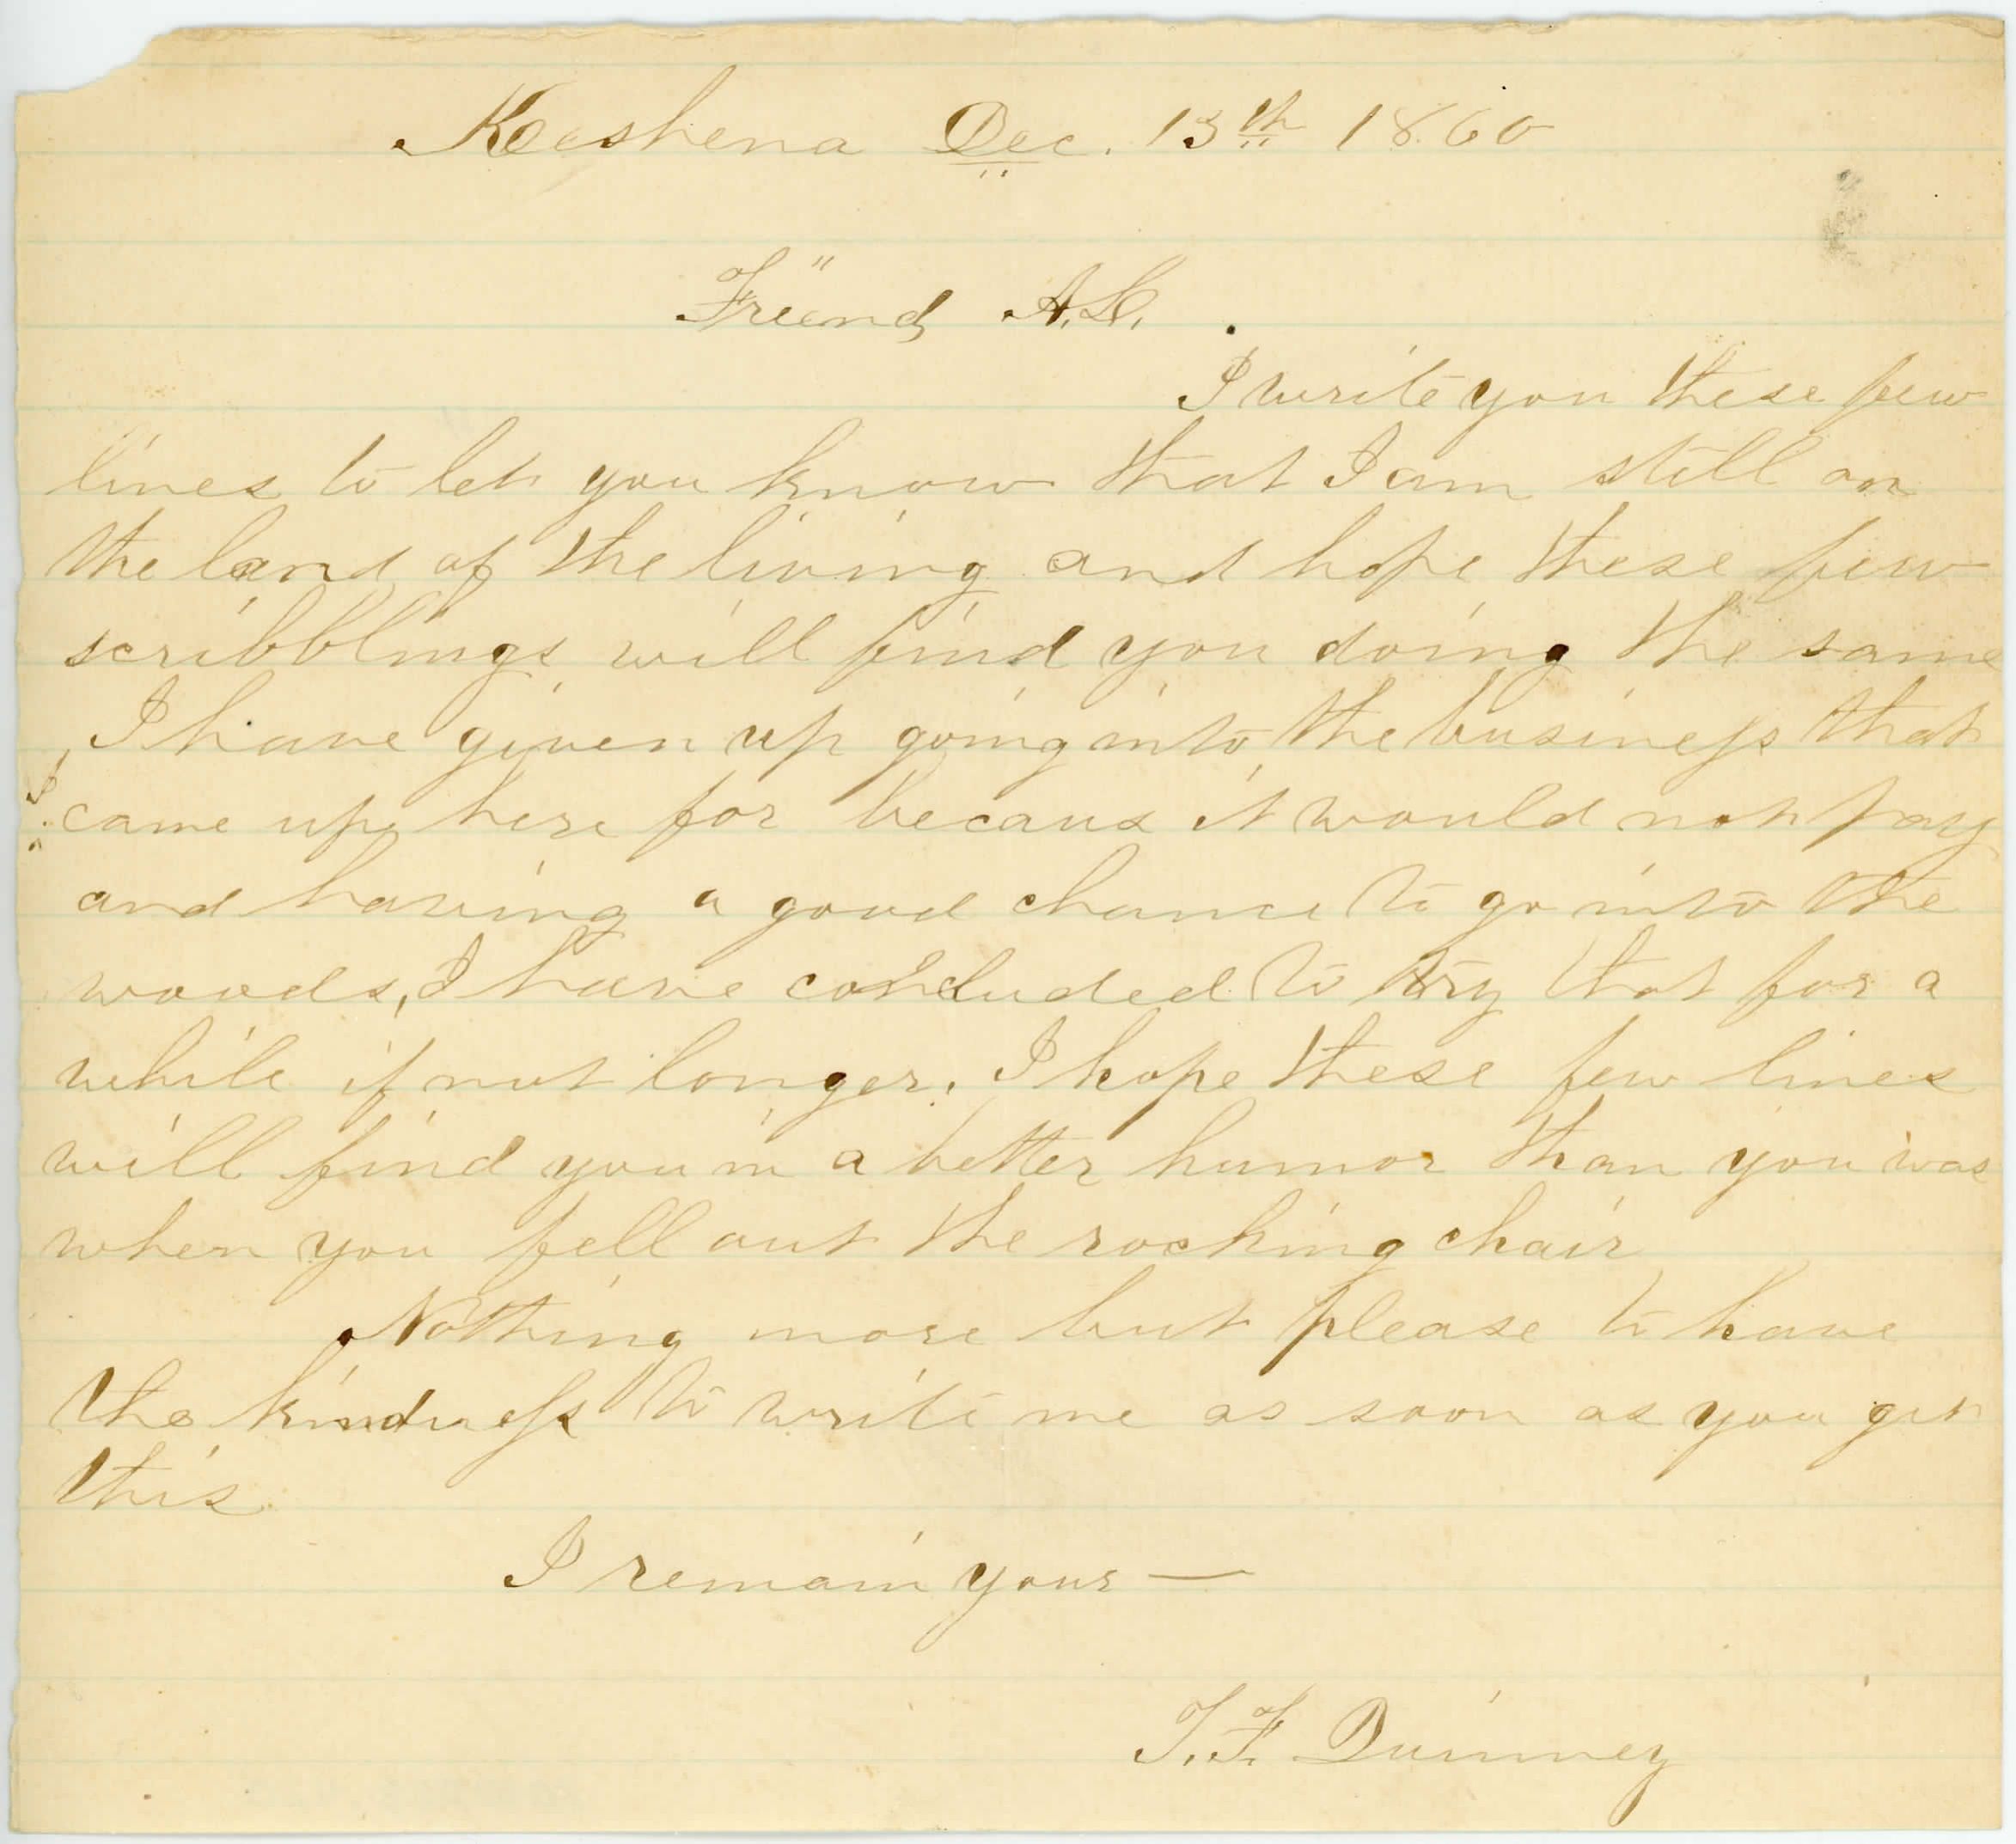 Keeshena Dec. 13th 1860
Friend A.
I write you these few
lines to let you know that I am still on
the land of the living and hope these few
scribblings will find you doing the same
I have given up going into the business that
I came up here for becaus it would not pay
and having a good chance to go into the
woods, I have concluded to try that for a
while if not longer. I hope these few lines
will find you in a better humor than you was
when you fell out the rocking chair
Nothing more but please to have
the kindness to write me as soon as you get
this
I remain yours —
Quinney